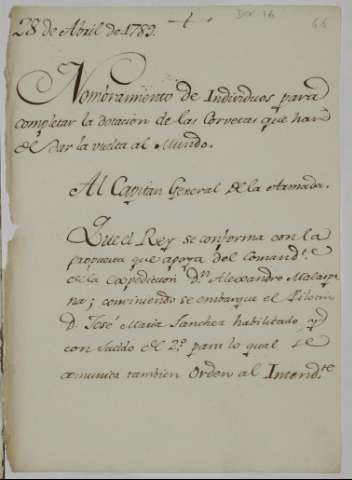 Doc 16
66
28 de Abril de 1789.
Nombramiento de Individuos para
completar la dotacion de las Corvetas que han
de dar la vuelta al Mundo.
Al Capitan General de la Armada.
Que el Rey se conforma con la
propuesta que apoya del Comand.te
de la expedicion D.n Alexandro Malaspi
na; conviniendo se embarque el Pilotin
D. José Maria Sanchez habilitado
con sueldo de 2.o para lo qual se
comunica tambien orden al Intend.te